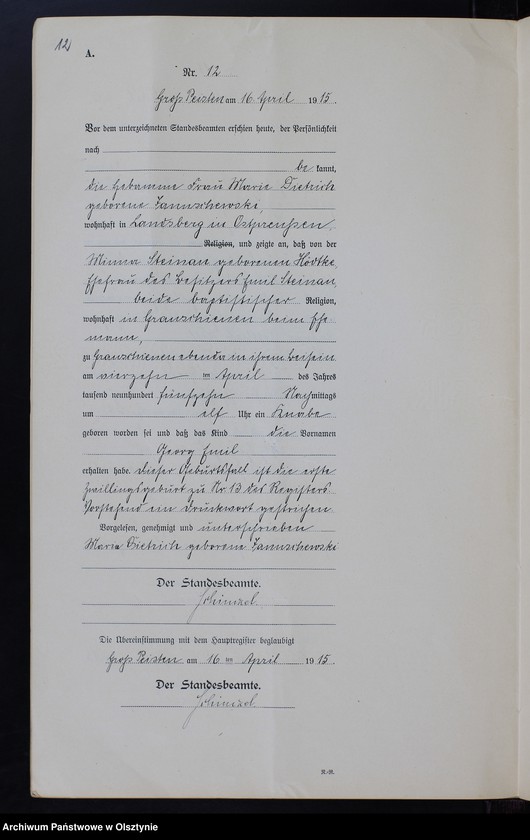 12
A.
Nr. 12
Groß Peisten am 16 April 1915.
Vor dem unterzeichneten Standesbeamten erschien heute, der Persönlichkeit
nach
be kannt,
die Hebamme Frau Marie Dietrich
geborene Jannschewski,
wohnhaft in Landsberg in Ostpreußen,
Religion, und zeigte an, daß von der
Minna Steinau geborenen Hödtke,
Ehefrau des Besitzers Emil Steinau,
beide baptistischer Religion,
wohnhaft in Granschienen beim Ehe
manne,
zu Granschienen ebenda in ihrem Beisein
am vierzehn ten April des Jahres
tausend neunhundert fünfzehn Nachmittags
um elf Uhr ein Knabe
geboren worden sei und daß das Kind die Vornamen
Georg Emil
erhalten habe. Dieser Geburtsfall ist die erste
Zwillingsgeburt zu Nr. 13 des Registers.
Vorstehend ein Druckwort gestrichen.
Vorgelesen, genehmigt und unterschrieben
Marie Dietrich geborene Jannschewski
Der Standesbeamte.
Schimzel.
Die Übereinstimmung mit dem Hauptregister beglaubigt
Groß Peisten am 16 ten April 1915.
Der Standesbeamte.
Schimzel
Archiwum Państwowe w Olsztynie